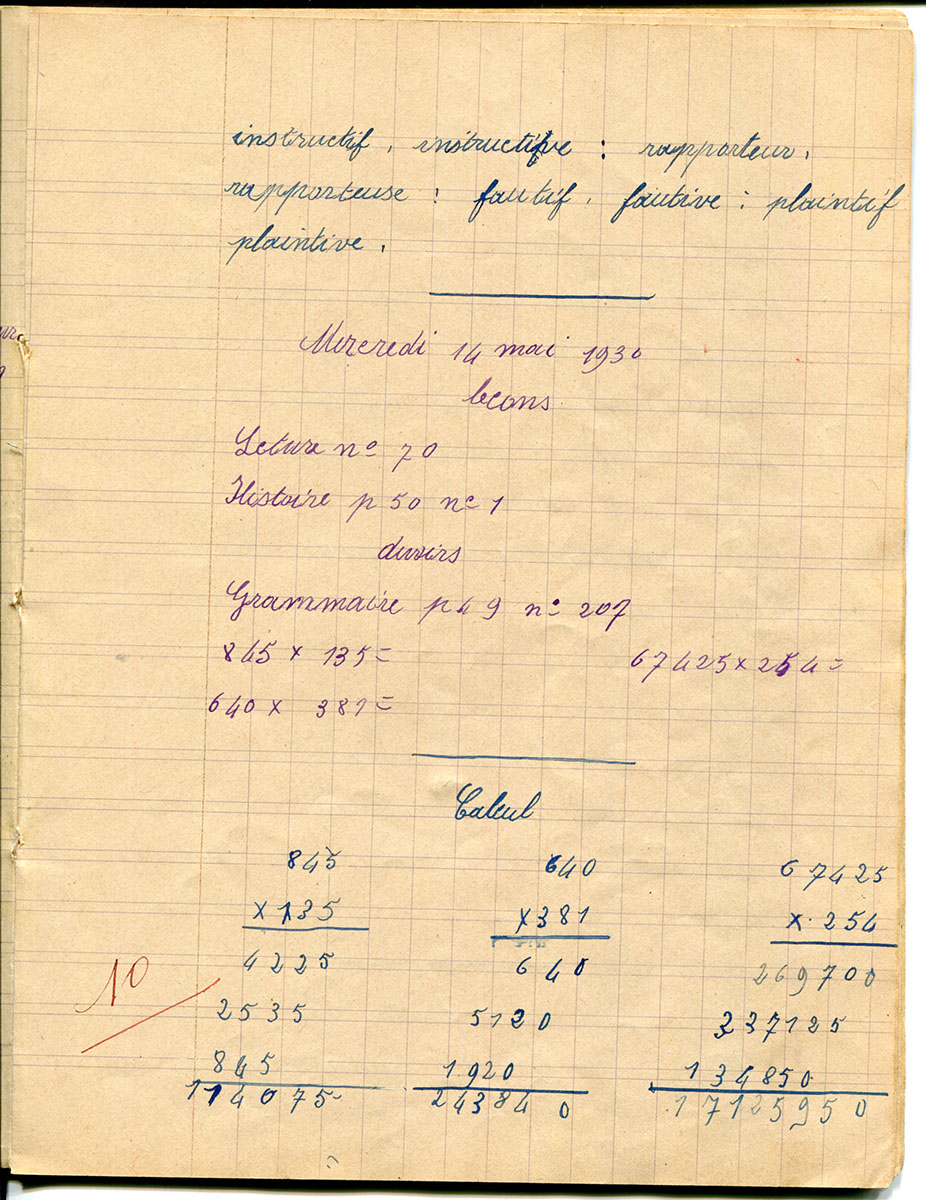 instructif, instructive : rapporteur,
rapporteuse : fautif, fautive : plaintif
plaintive.
Mercredi 14 mai 1930
leçons
Leture nº 70
Histoire p 50 nº 1
devoirs
Grammaire p 49 nº 207
845 x 135 = 67425 x 254 =
640 x 381 =
Calcul
845 640 67425
x 135 x 381 x 254
4225 640 269700
2535 5120 337125
845 1920 134850
114075 243840 17125950
10